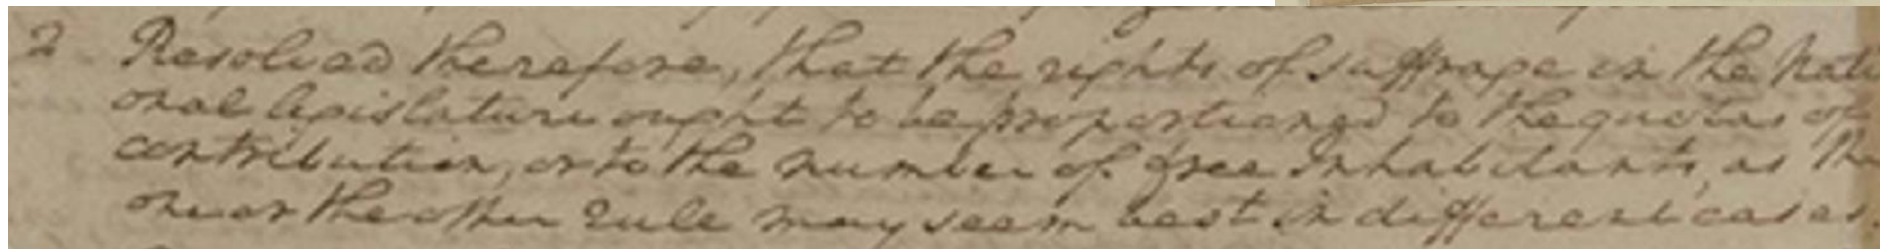 2 Resolved therefore, that the rights of suffrage in the Nati
onal legislature ought to be proportioned to the quotas of
contribution, or to the number of free inhabitants, as the
one or the other rule may seem best in different cases.